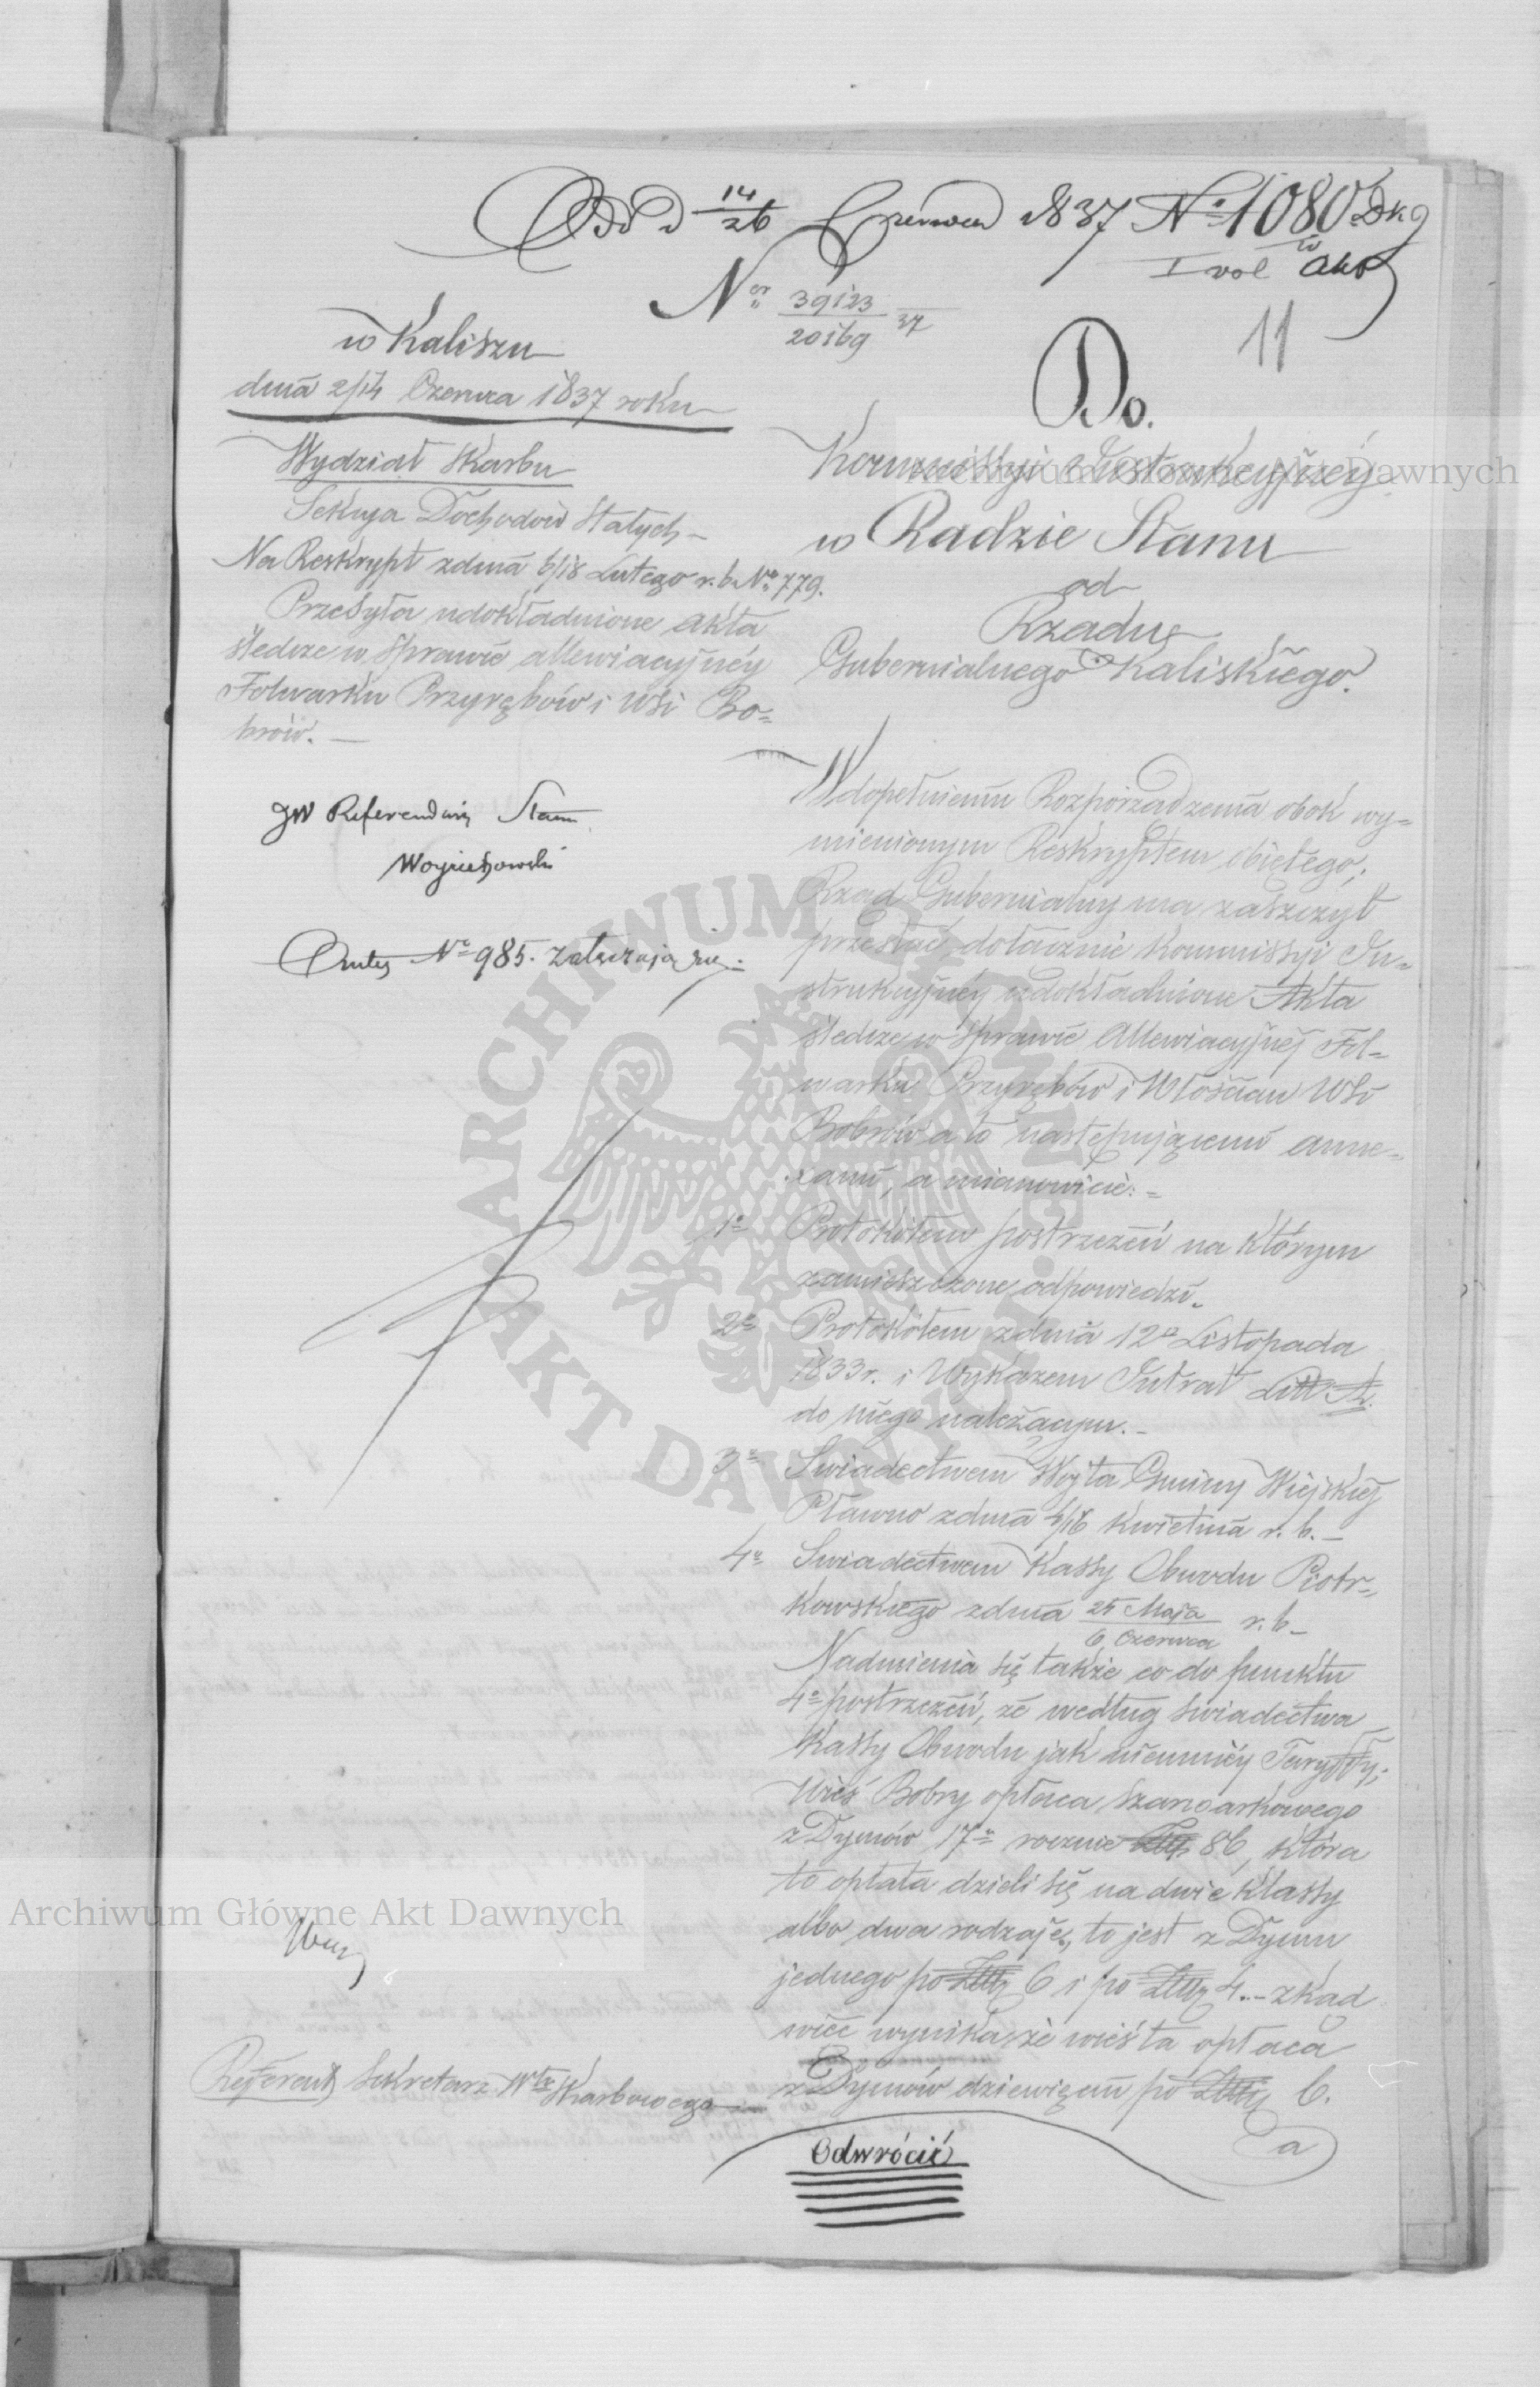 Odd d 14/26 Czerwca 1837 No 1080 Dkg
I vol w Akt
Nr 39123/20169 37
11
w Kaliszu
dnia 2/14 Czerwca 1837 roku
Wydział Skarbu
Sekcja Dochodów Stałych
Na Reskrypt z dnia 6/18 Lutego r. b. No 779.
Przesyła udokładnione akta
śledcze w Sprawie allewiacyjnéy
Folwarku Przyrębów i Wsi Bo=
brów. —
JW Referendarz Stanu
Woyciechowski
No 985. załatwiają się
Do.
Kommissyi Instrukcyjnéy
w Radzie Stanu
od
Rządu
Gubernialnego Kaliskiego.
W dopełnieniu Rozporządzenia obok wy=
mienionym Reskryptem objętego,
Rząd Gubernialny ma zaszczyt
przesłać dołącznie Kommissyi In=
strukcyjnéy udokładnione Akta
śledcze w Sprawie Allewiacyjnéj Fol=
warku Przyrębów i Włościan Wsi
Bobrów a to następującemi anne=
xami, a mianowicie: =
1o Protokółem postrzeżeń na którym
zamieszczone odpowiedzi.
2o Protokółem z dnia 12o Listopada
1833 r. i Wykazem Intrat Litt A.
do niego należącym. —
3o Swiadectwem Wójta Gminy Wiejskiéj
Pławno z dnia 4/16 Kwietnia r. b. —
4o Swiadectwem Kassy Obwodu Piotr=
kowskiego z dnia 25 Maja/6 Czerwca r. b —
Nadmienia się także co do punktu
4o postrzeżeń, że według świadectwa
Kassy Obwodu jak niemniéy Taryffy,
Wieś Bobry opłaca szarwarkowego
z Dymów 17u rocznie Złp 86, która
to opłata dzieli się na dwie klassy
albo dwa rodzaje, to jest z Dymu
jednego po Złp 6 i po Złp 4. — zkąd
więc wynika, że wieś ta opłaca
z Dymów dziewięciu po Złp 6.
a
Odwrócić
Referent Sekretarz Włu Skarbowego
Archiwum Główne Akt Dawnych
Archiwum Główne Akt Dawnych
ARCHIWUM GŁÓWNE
AKT DAWNYCH